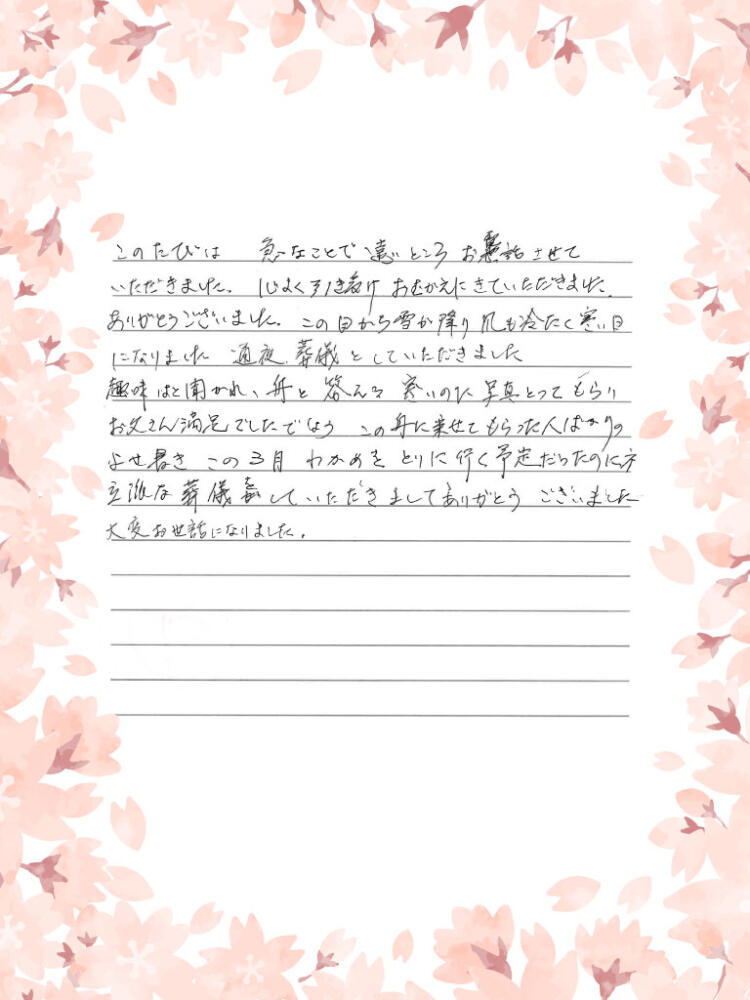 このたびは 急なことで遠いところ お世話させて
いただきました。心よく引き受け おむかえにきていただきました。
ありがとうございました。この日から雪が降り風も冷たく寒い日
になりました 通夜、葬儀としていただきました
趣味はと聞かれ、舟と答える 寒いのに写真とってもらい
お父さん満足でしたでしょう この舟に乗せてもらった人ばかりの
よせ書き この3月 わかめをとりに行く予定だったのに
立派な葬儀していただきましてありがとう ございました
大変お世話になりました。